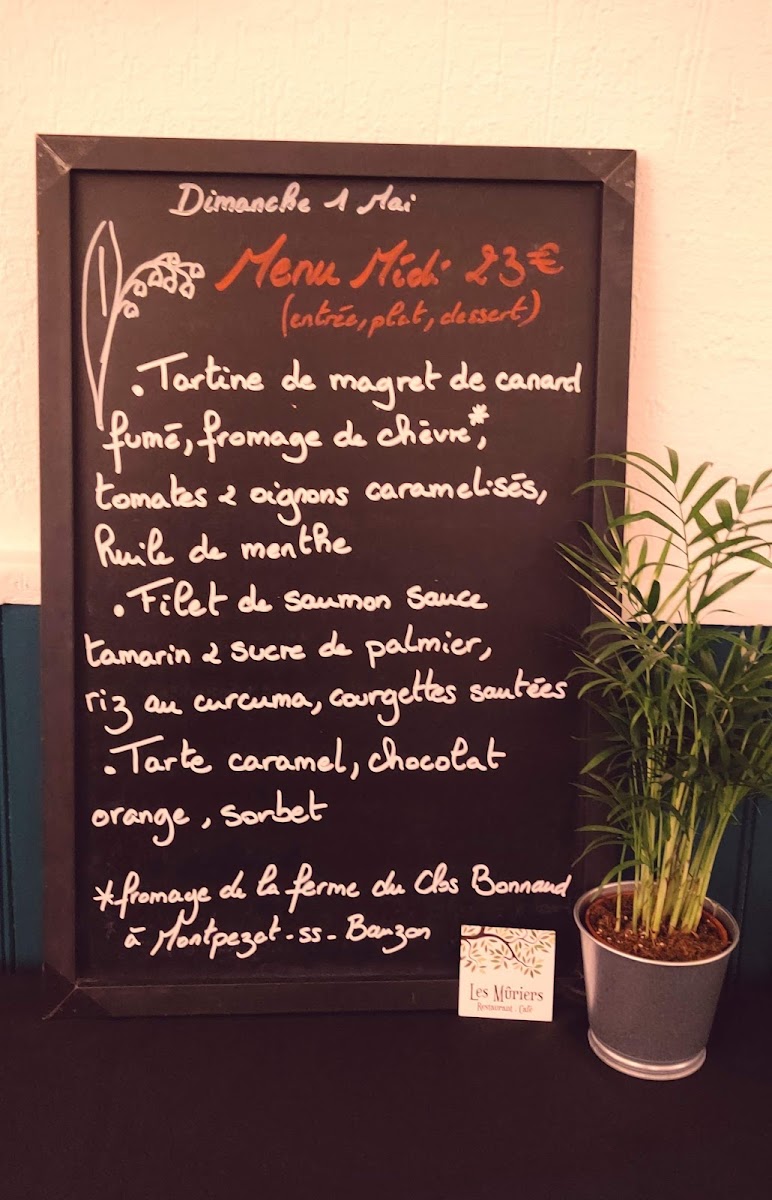 Dimanche 1 Mai
Menu Midi 23€
(entrée, plat, dessert)
. Tartine de magret de canard
fumé, fromage de chèvre*,
tomates & oignons caramelisés,
huile de menthe
. Filet de saumon sauce
tamarin & sucre de palmier,
riz au curcuma, courgettes sautées
. Tarte caramel, chocolat
orange, sorbet
*fromage de la ferme du Clos Bonnaud
à Montpezat-ss-Bauzon
Les Mûriers
Restaurant . Café